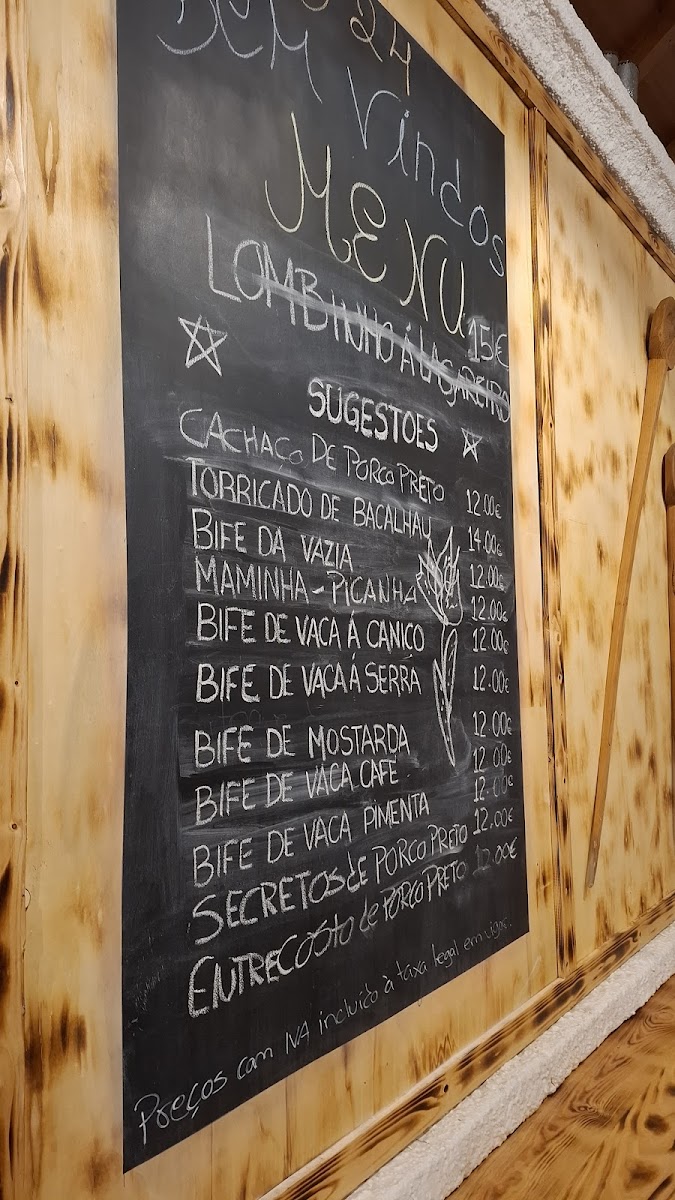 24
BEM Vindos
MENU
LOMBINHO Á LAGAREIRO 15€
SUGESTOES
CACHAÇO DE PORCO PRETO 12.00€
TORRICADO DE BACALHAU 14.00€
BIFE DA VAZIA 12.00€
MAMINHA - PICANHA 12.00€
BIFE DE VACA Á CANICO 12.00€
BIFE DE VACA Á SERRA 12.00€
BIFE DE MOSTARDA 12.00€
BIFE DE VACA CAFE 12.00€
BIFE DE VACA PIMENTA 12.00€
SECRETOS de PORCO PRETO 12.00€
ENTRECOSTO de PORCO PRETO 12.00€
Preços com IVA incluido à taxa legal em vigor.